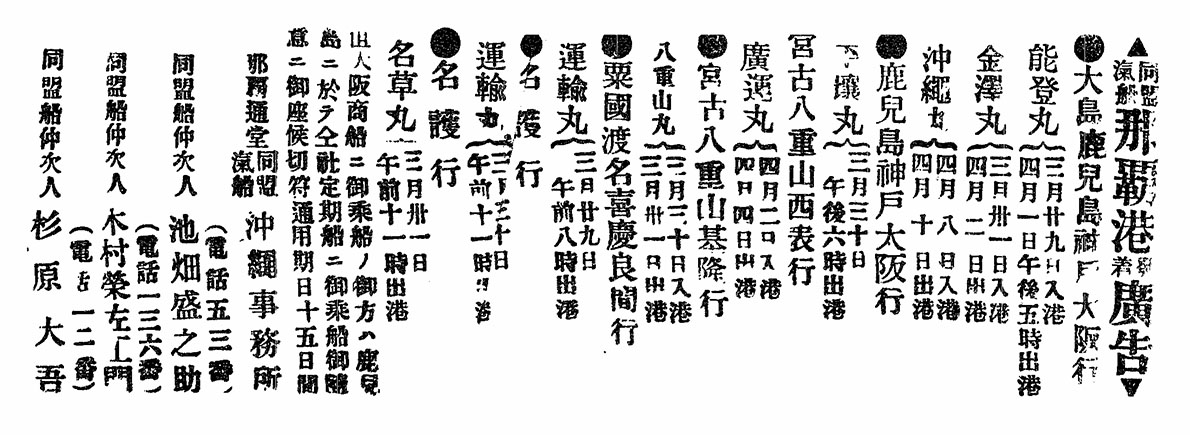 ▲同盟汽船那覇港發着廣告▼
●大島鹿兒島神戸大阪行
能登丸{三月廿九日入港 四月一日午後五時出港
金澤丸{三月卅一日入港 四月二日出港
沖繩丸{四月八日入港 四月十日出港
●鹿兒島神戸大阪行
三月三十日午後六時出港
宮古八重山西表行
廣運丸{四月二日入港 四月四日出港
●宮古八重山基隆行
八重山丸{三月三十日入港 三月卅一日出港
●粟國渡名喜慶良間行
運輸丸{三日廿九日 午前八時出港
●名護行
運輸丸{三月三十日 午前十一時出港
●名護行
名草丸{三月卅一日 午前十一時出港
大阪商船ニ御乘船ノ御方ハ鹿兒
島ニ於テ仝社定期船ニ御乘船御隨
意ニ御座候切符通用期日十五日間
那覇通堂 同盟汽船 沖繩事務所
(電話五三番)
同盟船仲次人 池畑盛之助
(電話一三六番)
同盟船仲次人 木村榮左エ門
(電話一二番)
同盟船仲次人 杉原大吾